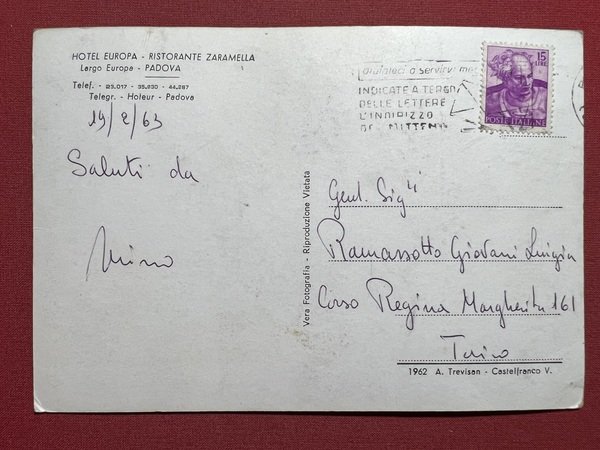 HOTEL EUROPA - RISTORANTE ZARAMELLA
Largo Europa - PADOVA
Telef. - 23.017 - 35.930 - 44.267
Telegr. - Hoteur - Padova
19/2/63
Saluti da
Mino
aiutateci a servirvi me
INDICATE A TERGO
DELLE LETTERE
L'INDIRIZZO
DEL MITTENTE
15
LIRE
POSTE ITALIANE
Gent. Sig.ri
Ramassotto Giovani Luigia
Corso Regina Margherita 161
Torino
Vera Fotografia - Riproduzione Vietata
1962 A. Trevisan - Castelfranco V.